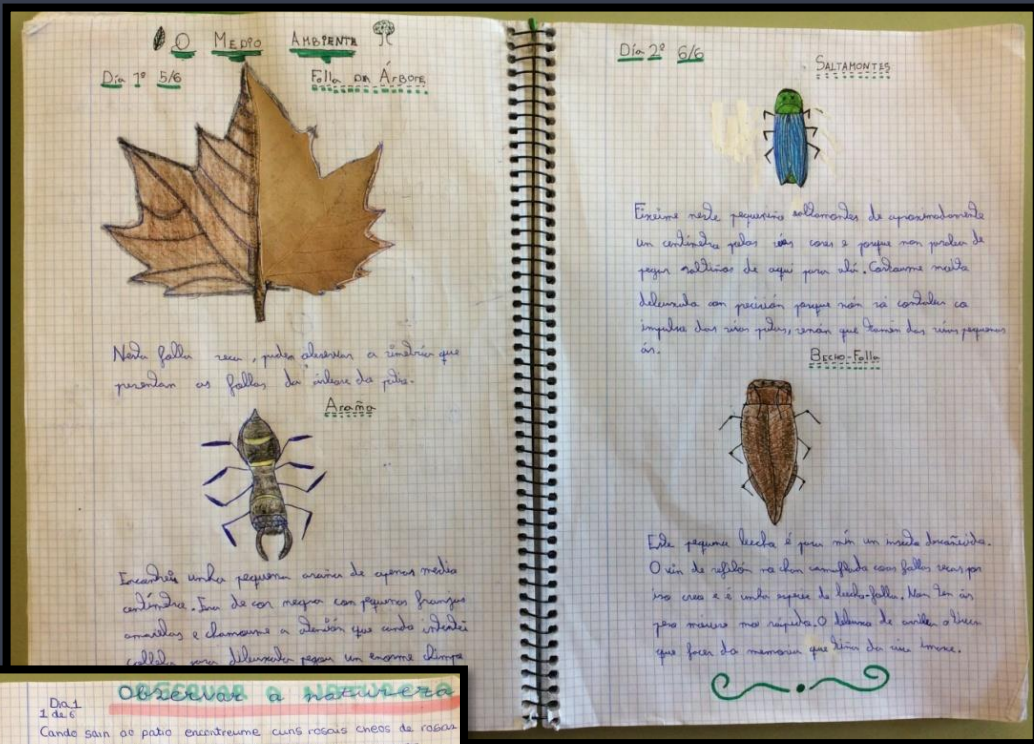 O MEDIO AMBIENTE
Día 1º 5/6
Folla da Árbore
Nesta folla seca, podes observar a simetría que
presentan as follas da árbore do patio.
Araña
Encontrei unha pequena araña de apenas medio
centímetro. Era de cor negra con pequenas franxas
amarelas e chamoume a atención que cando intentei
collela para debuxala pegou un enorme chimpo
Día 2º 6/6
SALTAMONTES
Fixeime neste pequeniño saltamontes de aproximadamente
un centímetro polas súas cores e porque non paraba de
pegar saltiños de aquí para alá. Costoume moito
debuxalo con precisión porque non só contaba co
impulso das súas patas, senón que tamén das súas pequenas
ás.
BICHO-Folla
Este pequeno bicho é para min un insecto descoñecido.
O vin de refilón no chan camuflado coas follas secas por
iso creo é unha especie de bicho-folla. Non ten ás
pero móvese moi rápido. O debuxo de arriba o tiven
que facer da memoria que tiña da súa imaxe.
OBSERVAR a NATUREZA
Día 1
1 de 6
Cando saín ao patio encontreime cuns rosais cheos de rosas